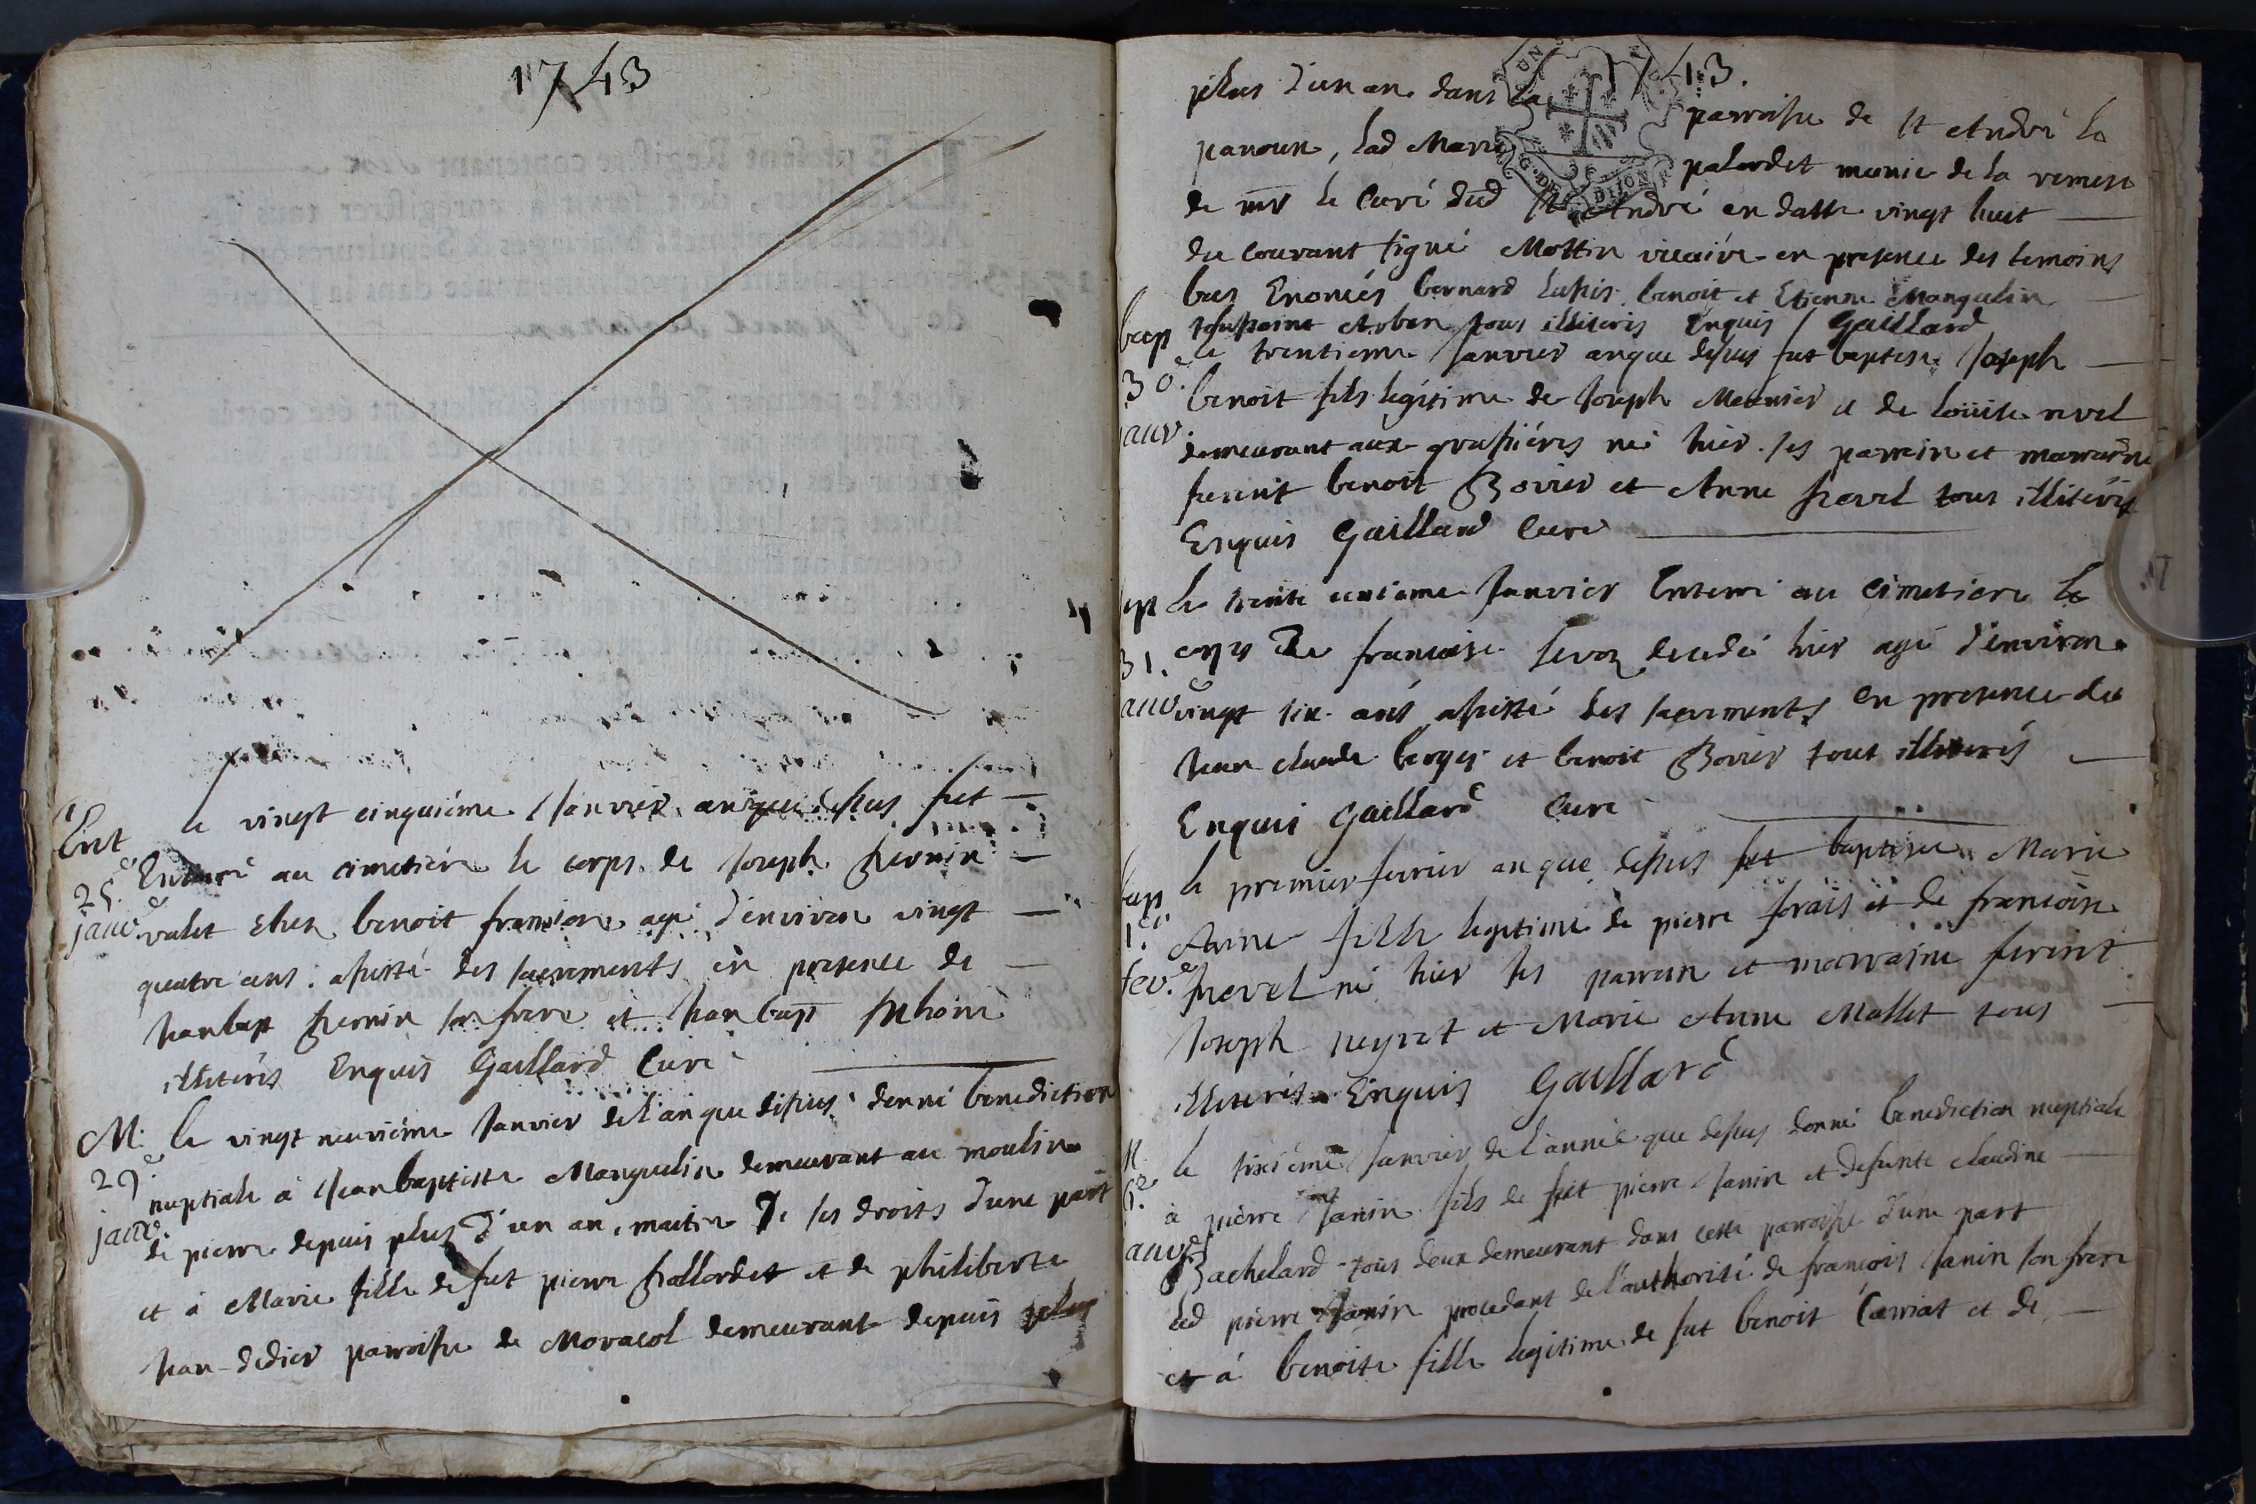 1743
Ent
25.e
janv.
le vingt cinquiéme Janvier an que dessus fut
Enterré au cimetiére le corps de Joseph Fromin
valet chez benoit agé d'environ vingt
quatre ans assisté des sacrements en presence de
Jeanbapt son frere et Jeanbapt
illiterés Enquis Gaillard Curé
M.
29e
janv.
le vingt neuviéme Janvier de l'an que dessus donné benediction
nuptiale à Jeanbaptiste Manguelin demeurant au moulin
de pierre depuis plus d'un an, maitre De ses droits d'une part
et à Marie fille de fut pierre Pallordet et de philiberte
Jean-didier parroisse de Moracol demeurant depuis plus
1743.
G. DE DIJON
plus d'un an dans la parroisse de St André le
panoux, lad Marie palordet munie de la remise
de mr le Curé dud St André en datte vingt huit
du courant signé Mottin vicaire en presence des temoins
bas Enoncés bernard benoit et Etienne Manguelin
toussaint tous illiteris Enquis / Gaillard
bap
30.e
janv.
le trentieme Janvier an que dessus fut baptisé Joseph
benoit fils legitime de Joseph Meunier et de loüise revel
demeurant aux né hier. ses parrein et marraine
furent benoit Bovier et Anne revel tous illiterés
Enquis Gaillard Curé
31.
le trente unieme Janvier Enterré au cimetiere le
corps De francoise decedé hier agé d'environ
vingt six ans assisté des sacrements en presence de
Jean claude berger et benoit Bovier tout illiterés
Enquis Gaillard Curé
bap
1.er
fev.e
le premier fevrier an que dessus fut baptisée Marie
Anne fille legitime de pierre et de francoise
revel né hier ses parrein et marraine furent
Joseph neyret et Marie Anne Mallet tous
illiterés Enquis Gaillard
M.
6.e
le sixiéme Janvier de l'année que dessus donné benediction nuptiale
à pierre Janin fils de fut pierre Janin et defunte claudine
Bachelard tous deux demeurant dans cette parroisse d'une part
led pierre Janin procedant de l'authorité de francois Janin son frere
et à benoite fille legitime de fut benoit Carriat et de